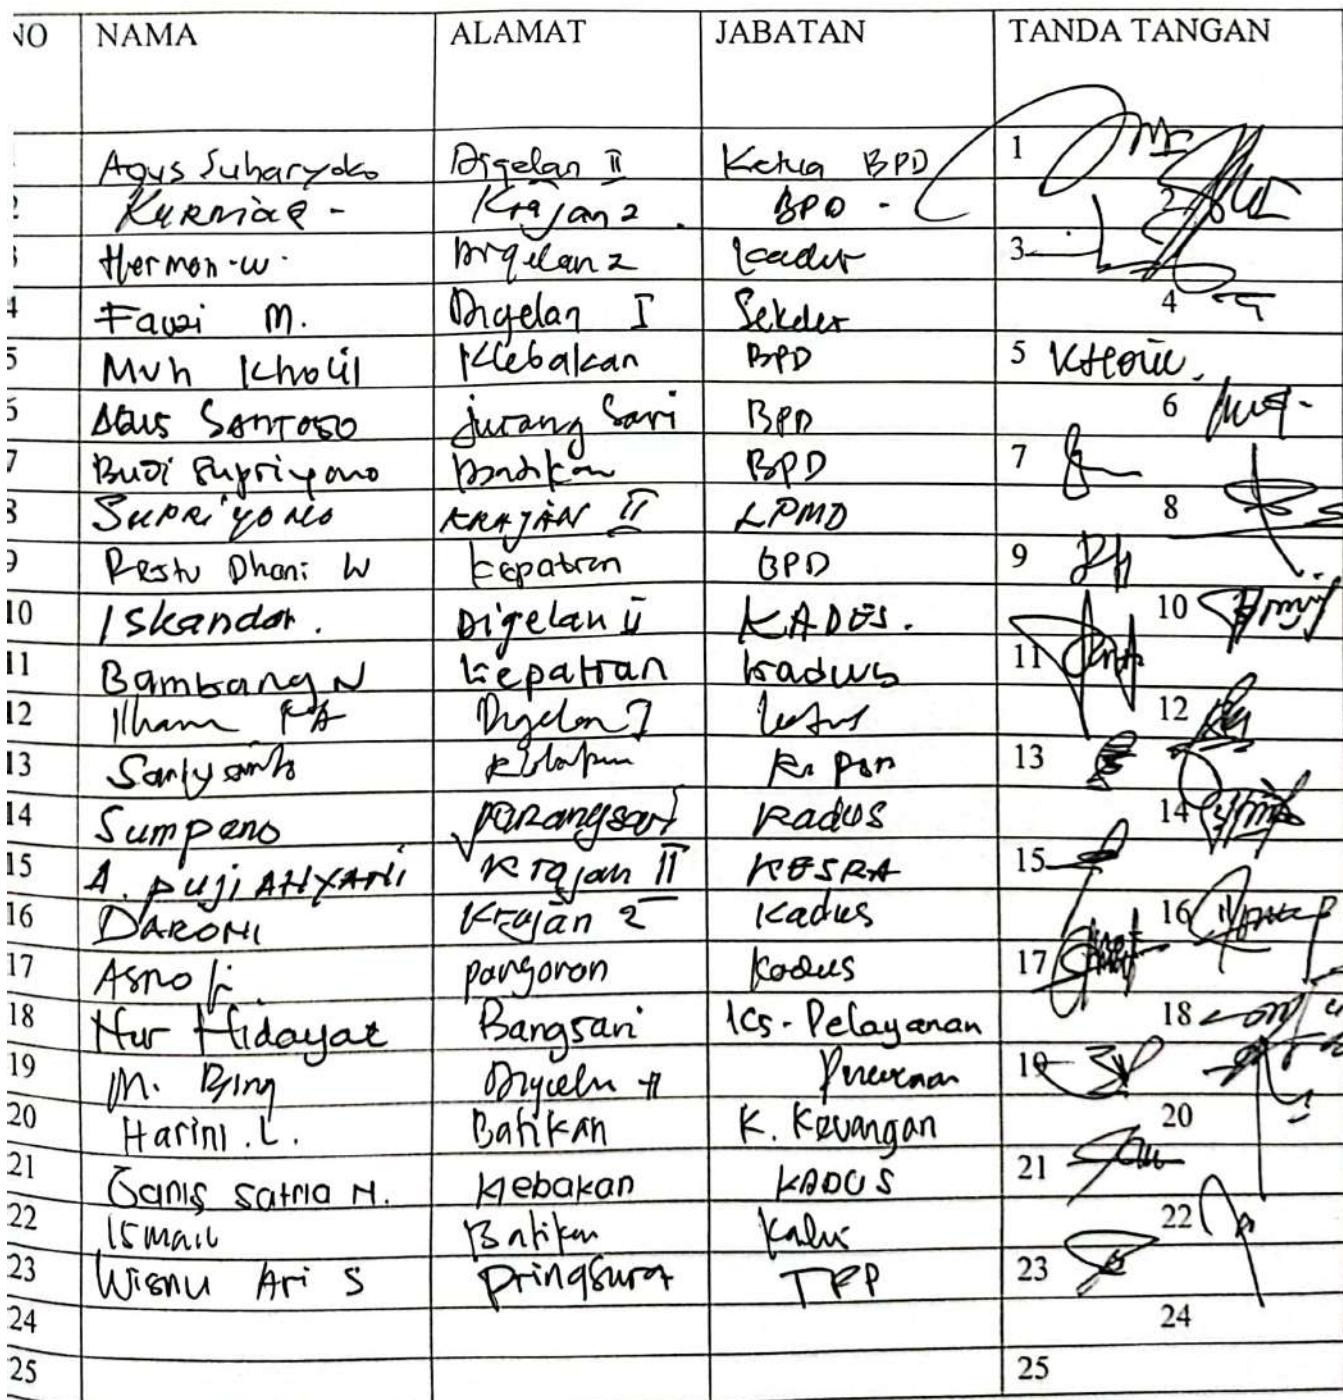 NO NAMA ALAMAT JABATAN TANDA TANGAN
Agus Suharyoko Digelan II Ketua BPD 1
2 Krajan 2. BPD - 2
3 Herman-W. Digelan 2 Kadus 3
4 Fauzi M. Digelan I Sekdes 4
5 Muh Kholil Klebakan BPD 5 KHOLIL.
6 AGUS SANTOSO Jurang Sari BPD 6
7 Budi Supriyono Batikan BPD 7
8 SUPRIYONO KRAJAN II LPMD 8
9 Restu Dhani W Kepatran BPD 9
10 Iskandar. Digelan II KADUS. 10
11 Bambang N Kepatran Kadus 11
12 Ilham Digelan I 12
13 13
14 Sumpeno Jurangsari Kadus 14
15 A. PUJI AHYANI Krajan II KESRA 15
16 DARONI Krajan 2 Kadus 16
17 pangoran Kadus 17
18 Nur Hidayat Bangsari Ks-Pelayanan 18
19 M. Digelan II 19
20 Harini.L. Batikan K. Keuangan 20
21 Ganis Satria N. Klebakan KADUS 21
22 Ismail Batikan Kadus 22
23 Wisnu Ari S Pringsurat TPP 23
24 24
25 25